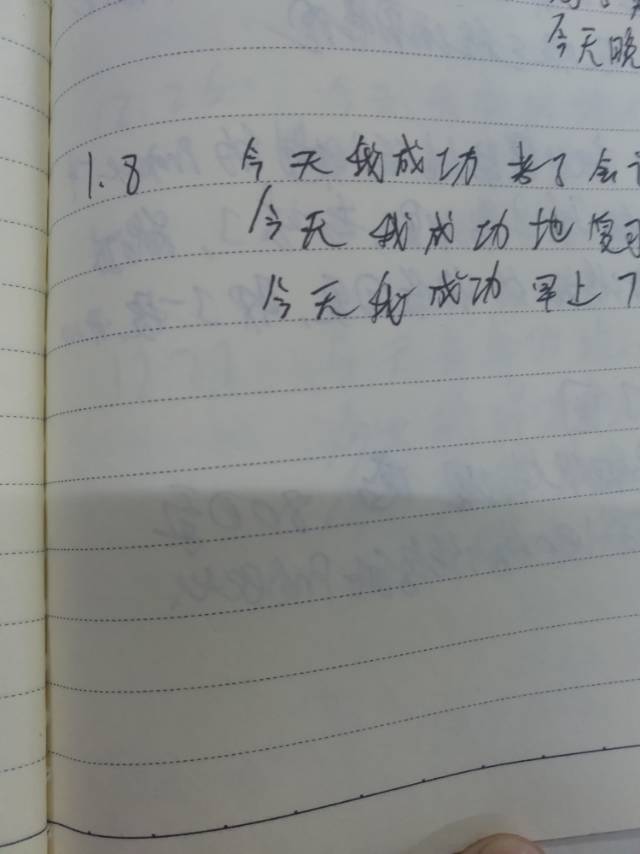 今天晚
1.8 今天我成功考了会
今天我成功地复习
今天我成功早上7